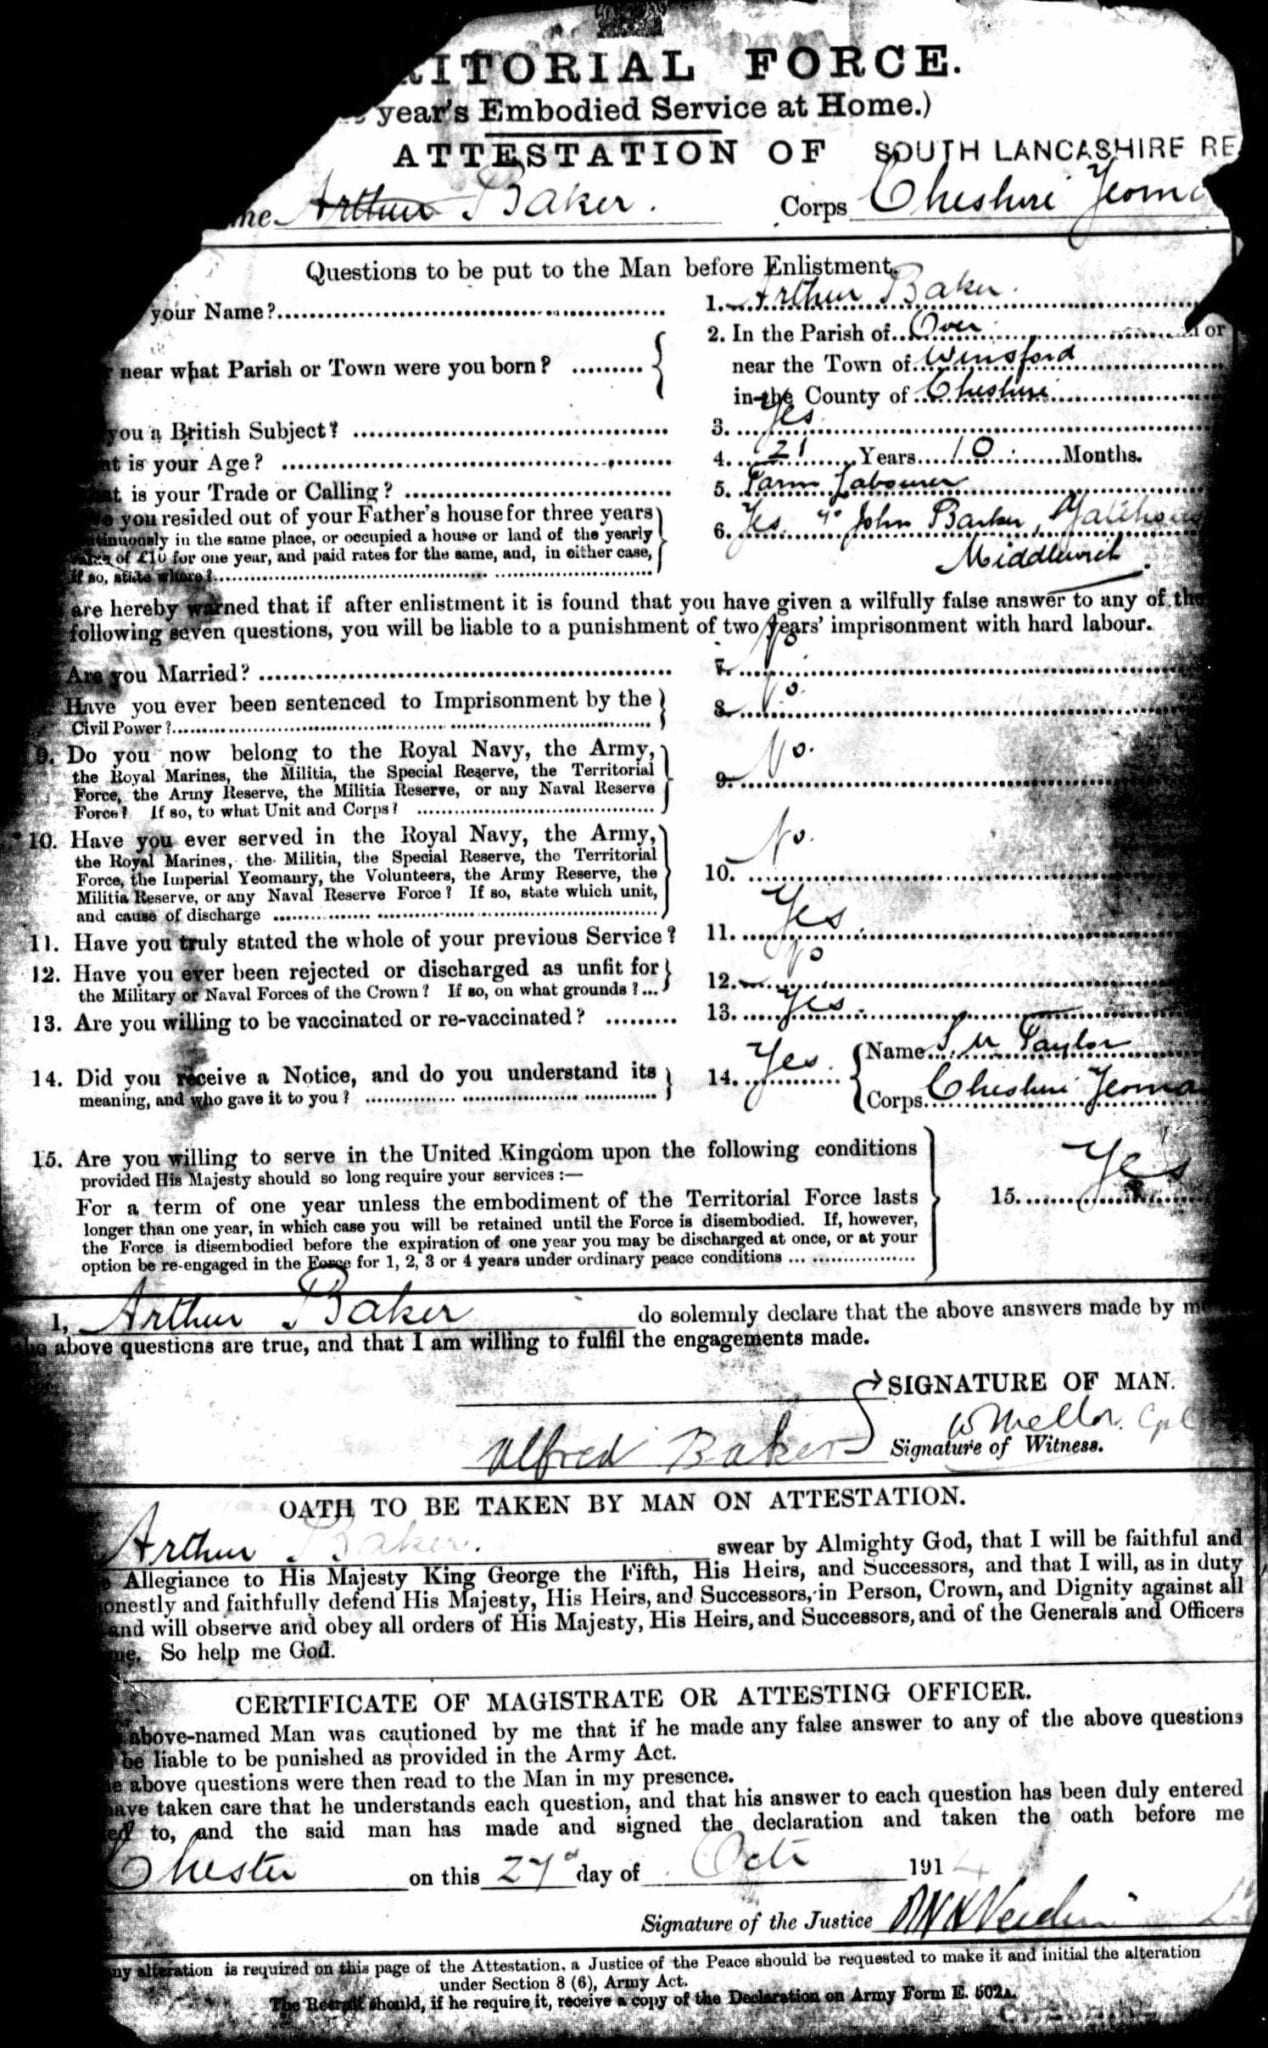 RITORIAL FORCE.
year's Embodied Service at Home.)
ATTESTATION OF SOUTH LANCASHIRE RE
me Arthur Baker. Corps Cheshire Yeoma
Questions to be put to the Man before Enlistment.
your Name? 1. Arthur Baker.
2. In the Parish of Over or
near what Parish or Town were you born? near the Town of Winsford
in the County of Cheshire
you a British Subject? 3. Yes
at is your Age? 4. 21 Years 10 Months.
at is your Trade or Calling? 5. Farm Labourer
you resided out of your Father's house for three years
tinuously in the same place, or occupied a house or land of the yearly 6. Yes. John Barker,
of £10 for one year, and paid rates for the same, and, in either case, Middlewich.
if so, state where?
are hereby warned that if after enlistment it is found that you have given a wilfully false answer to any of the
following seven questions, you will be liable to a punishment of two years' imprisonment with hard labour.
Are you Married? 7. No
Have you ever been sentenced to Imprisonment by the 8. No.
Civil Power?
9. Do you now belong to the Royal Navy, the Army,
the Royal Marines, the Militia, the Special Reserve, the Territorial 9. No.
Force, the Army Reserve, the Militia Reserve, or any Naval Reserve
Force? If so, to what Unit and Corps?
10. Have you ever served in the Royal Navy, the Army,
the Royal Marines, the Militia, the Special Reserve, the Territorial
Force, the Imperial Yeomanry, the Volunteers, the Army Reserve, the 10. No.
Militia Reserve, or any Naval Reserve Force? If so, state which unit,
and cause of discharge
11. Have you truly stated the whole of your previous Service? 11. Yes
12. Have you ever been rejected or discharged as unfit for 12. No
the Military or Naval Forces of the Crown? If so, on what grounds?...
13. Are you willing to be vaccinated or re-vaccinated? 13. Yes
Name S. M. Taylor
14. Did you receive a Notice, and do you understand its 14. Yes.
meaning, and who gave it to you? Corps Cheshire Yeoma
15. Are you willing to serve in the United Kingdom upon the following conditions
provided His Majesty should so long require your services:—
For a term of one year unless the embodiment of the Territorial Force lasts 15. Yes
longer than one year, in which case you will be retained until the Force is disembodied. If, however,
the Force is disembodied before the expiration of one year you may be discharged at once, or at your
option be re-engaged in the Force for 1, 2, 3 or 4 years under ordinary peace conditions ...
I, Arthur Baker do solemnly declare that the above answers made by me
above questions are true, and that I am willing to fulfil the engagements made.
SIGNATURE OF MAN.
W Mellor. Cpl
Alfred Baker Signature of Witness.
OATH TO BE TAKEN BY MAN ON ATTESTATION.
Arthur Baker. swear by Almighty God, that I will be faithful and
Allegiance to His Majesty King George the Fifth, His Heirs, and Successors, and that I will, as in duty
onestly and faithfully defend His Majesty, His Heirs, and Successors, in Person, Crown, and Dignity against all
and will observe and obey all orders of His Majesty, His Heirs, and Successors, and of the Generals and Officers
me. So help me God.
CERTIFICATE OF MAGISTRATE OR ATTESTING OFFICER.
above-named Man was cautioned by me that if he made any false answer to any of the above questions
be liable to be punished as provided in the Army Act.
e above questions were then read to the Man in my presence.
have taken care that he understands each question, and that his answer to each question has been duly entered
ed to, and the said man has made and signed the declaration and taken the oath before me
Chester on this 27 day of Oct 1914
Signature of the Justice
ny alteration is required on this page of the Attestation, a Justice of the Peace should be requested to make it and initial the alteration
under Section 8 (6), Army Act.
The Recruit should, if he require it, receive a copy of the Declaration on Army Form E. 502A.